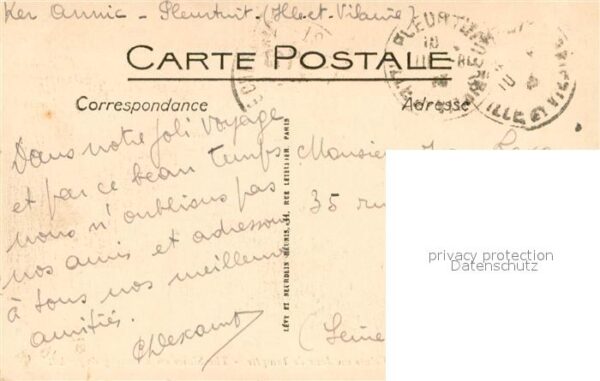 Ker Annic - Pleurtuit (Ille et-Vilaine)
CARTE POSTALE
Correspondance
Adresse
Dans notre joli voyage
et par ce beau temps
nous n'oublions pas
nos amis et adressons
à tous nos meilleures
amitiés.
LÉVY ET NEURDEIN RÉUNIS, 44, RUE LETELLIER, PARIS
Monsieur
35 ru
(Seine
PLEURTUIT
ILLE ET VILAINE
privacy protection
Datenschutz